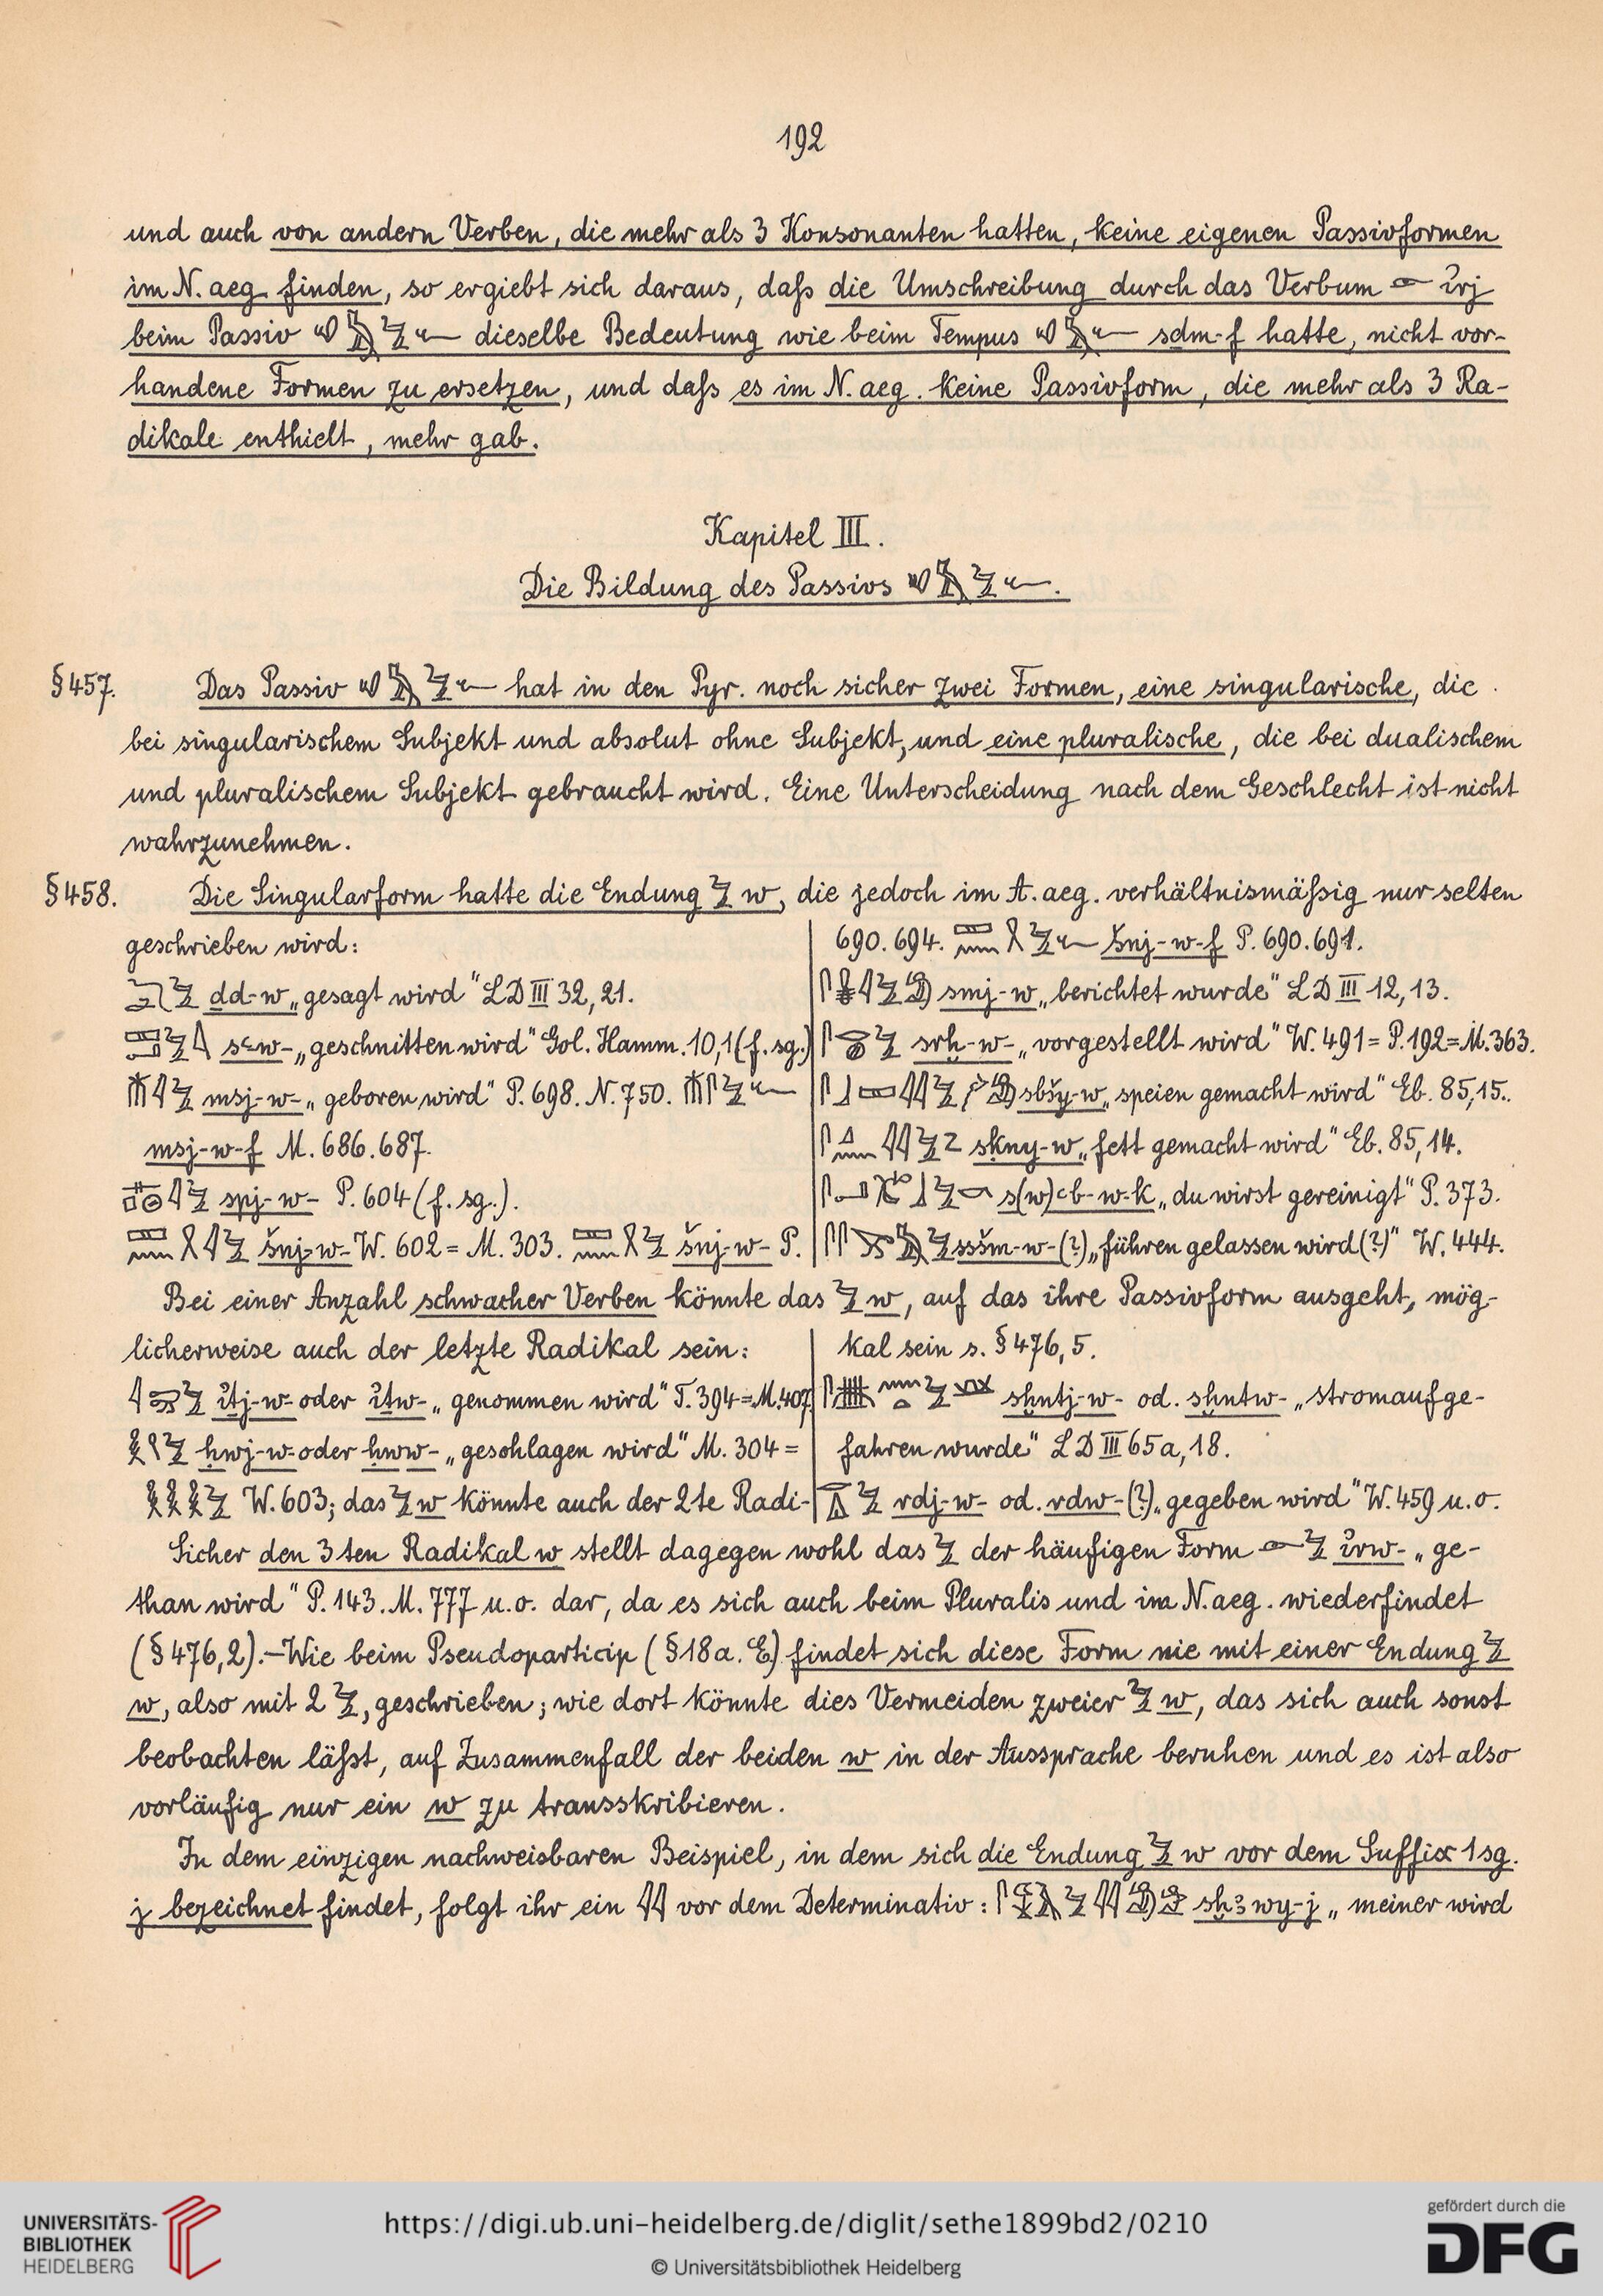 192
und auch von andern Verben, die mehr als 3 Konsonanten hatten, keine eigenen Passivformen
im N. aeg. finden, so ergiebt sich daraus, daſs die Umschreibung durch das Verbum 𓁹 ı͗rj
beim Passiv 𓄔𓅓𓅱𓆑 dieselbe Bedeutung wie beim Tempus 𓄔𓅓𓆑 sdm-f hatte, nicht vor-
handene Formen zu ersetzen, und daſs es im N. aeg. keine Passivform, die mehr als 3 Ra-
dikale enthielt, mehr gab.
Kapitel III.
Die Bildung des Passivs 𓄔𓅓𓅱𓆑.
§ 457. Das Passiv 𓄔𓅓𓅱𓆑 hat in den Pyr. noch sicher zwei Formen, eine singularische, die
bei singularischem Subjekt und absolut ohne Subjekt, und eine pluralische, die bei dualischem
und pluralischem Subjekt gebraucht wird. Eine Unterscheidung nach dem Geschlecht ist nicht
wahrzunehmen.
§ 458. Die Singularform hatte die Endung 𓅱 w, die jedoch im A. aeg. verhältnismäſsig nur selten
geschrieben wird:
𓆓𓂧𓅱 dd-w „gesagt wird“ LD III 32, 21.
𓅱 sꜥ-w- „geschnitten wird“ Gol. Hamm. 10,1 (f. sg.)
𓄟𓇋𓅱 msj-w- „geboren wird“ P. 698. N. 750. 𓄟𓋴𓅱𓆑
msj-w-f M. 686. 687.
𓇋𓅱 spj-w- P. 604 (f. sg.).
𓈙𓈖𓇋𓅱 šnj-w- W. 602 = M. 303. 𓈙𓈖𓅱 šnj-w- P.
690. 694. 𓈙𓈖𓅱𓆑 šnj-w-f P. 690. 691.
𓋴𓇋𓅱𓀁 smj-w „berichtet wurde“ LD III 12, 13.
𓋴𓂋𓐍𓅱 srḫ-w- „vorgestellt wird“ W. 491 = P. 192 = M. 363.
𓋴𓃀𓈙𓇌𓅱 sbšy-w „speien gemacht wird“ Eb. 85, 15.
𓋴𓈎𓈖𓇌𓅱 sḳny-w „fett gemacht wird“ Eb. 85, 14.
s(w)ꜥb-w-k „du wirst gereinigt“ P. 373.
𓋴𓋴𓅓𓅱 sšm-w-(?) „führen gelassen wird (?)“ W. 444.
Bei einer Anzahl schwacher Verben könnte das 𓅱 w, auf das ihre Passivform ausgeht, mög-
licherweise auch der letzte Radikal sein:
𓇋𓅱 ı͗tj-w- oder ı͗tw- „genommen wird“ T. 394 = M. 407
𓎛𓅱 ḥwj-w- oder ḥww- „geschlagen wird“ M. 304 =
𓎛𓎛𓎛𓅱 W. 603; das 𓅱 w könnte auch der 2te Radi-
kal sein s. § 476, 5.
𓋴𓈖𓏏𓅱 sḫntj-w- od. sḫntw- „stromaufge-
fahren wurde“ LD III 65a, 18.
𓅱 rdj-w- od. rdw-(?) „gegeben wird“ W. 459 u. o.
Sicher den 3ten Radikal w stellt dagegen wohl das 𓅱 der häufigen Form 𓁹𓅱 ı͗rw- „ge-
than wird“ P. 143. M. 777 u. o. dar, da es sich auch beim Pluralis und im N. aeg. wiederfindet
(§ 476, 2). – Wie beim Pseudoparticip (§ 18a. E) findet sich diese Form nie mit einer Endung 𓅱
w, also mit 2 𓅱, geschrieben; wie dort könnte dies Vermeiden zweier 𓅱 w, das sich auch sonst
beobachten läſst, auf Zusammenfall der beiden w in der Aussprache beruhen und es ist also
vorläufig nur ein w zu transskribieren.
In dem einzigen nachweisbaren Beispiel, in dem sich die Endung 𓅱 w vor dem Suffix 1 sg.
j bezeichnet findet, folgt ihr ein 𓇌 vor dem Determinativ: 𓋴𓆼𓄿𓅱𓇌𓀁𓀀 sḫꜣwy-j „meiner wird
UNIVERSITÄTS-
BIBLIOTHEK
HEIDELBERG
https://digi.ub.uni-heidelberg.de/diglit/sethe1899bd2/0210
© Universitätsbibliothek Heidelberg
gefördert durch die
DFG